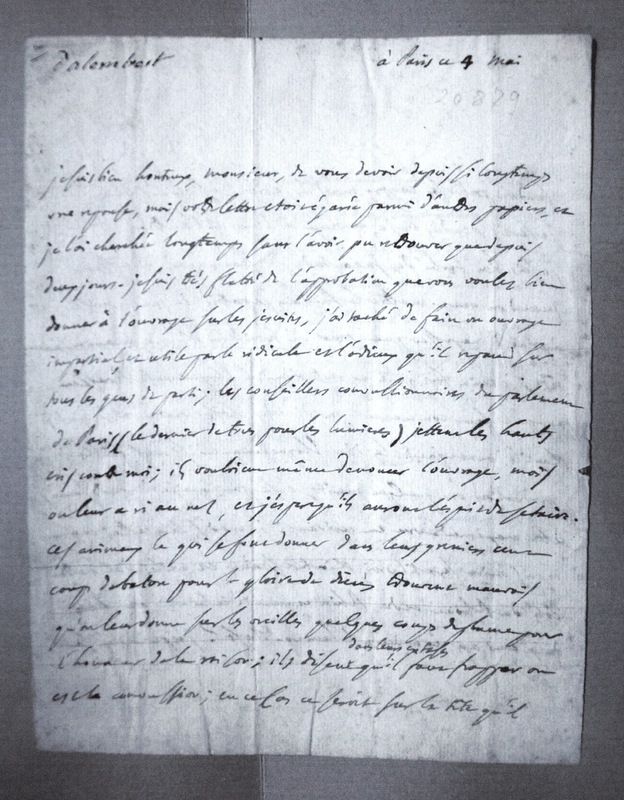 Dalembert
à Paris ce 4 mai
20879
je suis bien honteux, monsieur, de vous devoir depuis si longtemps
une reponse, mais votre lettre etoit égarée parmi d'autres papiers, et
je l'ai cherchée longtemps sans l'avoir pu retrouver que depuis
deux jours. je suis très flatté de l'approbation que vous voulez bien
donner à l'ouvrage sur les jesuites, j'ai taché de faire un ouvrage
impartial, et utile par le ridicule et l'odieux qu'il repand sur
tous les gens de parti; les conseillers convulsionnaires du parlement
de Paris (le dernier de tous pour les lumieres) jettent les hauts
cris contre moi; ils vouloient même denoncer l'ouvrage, mais
on leur a ri au nez, et j'espere qu'ils auront l'esprit de se taire.
ces animaux là qui se font donner dans leurs greniers cent
coups de baton pour la gloire de dieu, trouvent mauvais
qu'on leur donne sur les oreilles quelques coups de plume pour
l'honneur de la raison; ils disent dans leurs extases qu'il faut frapper ou
est la convulsion; en ce cas ce seroit sur la tête qu'il